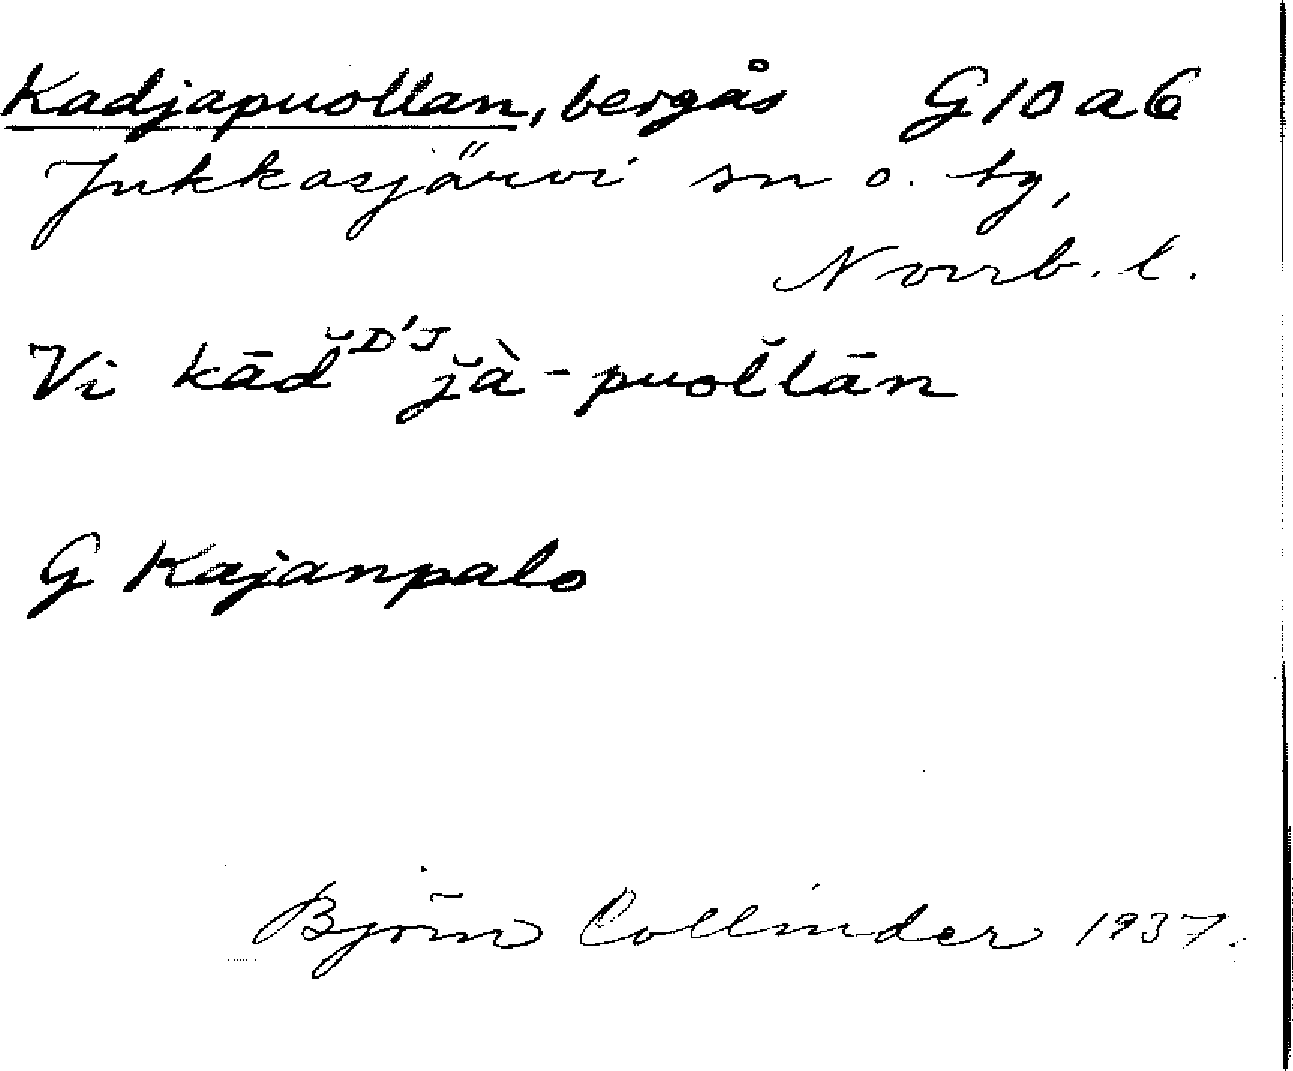 Kadjapuollan, bergås G10a6
Jukkasjärvi sn o. tg,
Norrb. l.
Vi kād̆ᴰ'ᴶj̆à-puol̆lān
G Kajanpalo
Björn Collinder 1937.